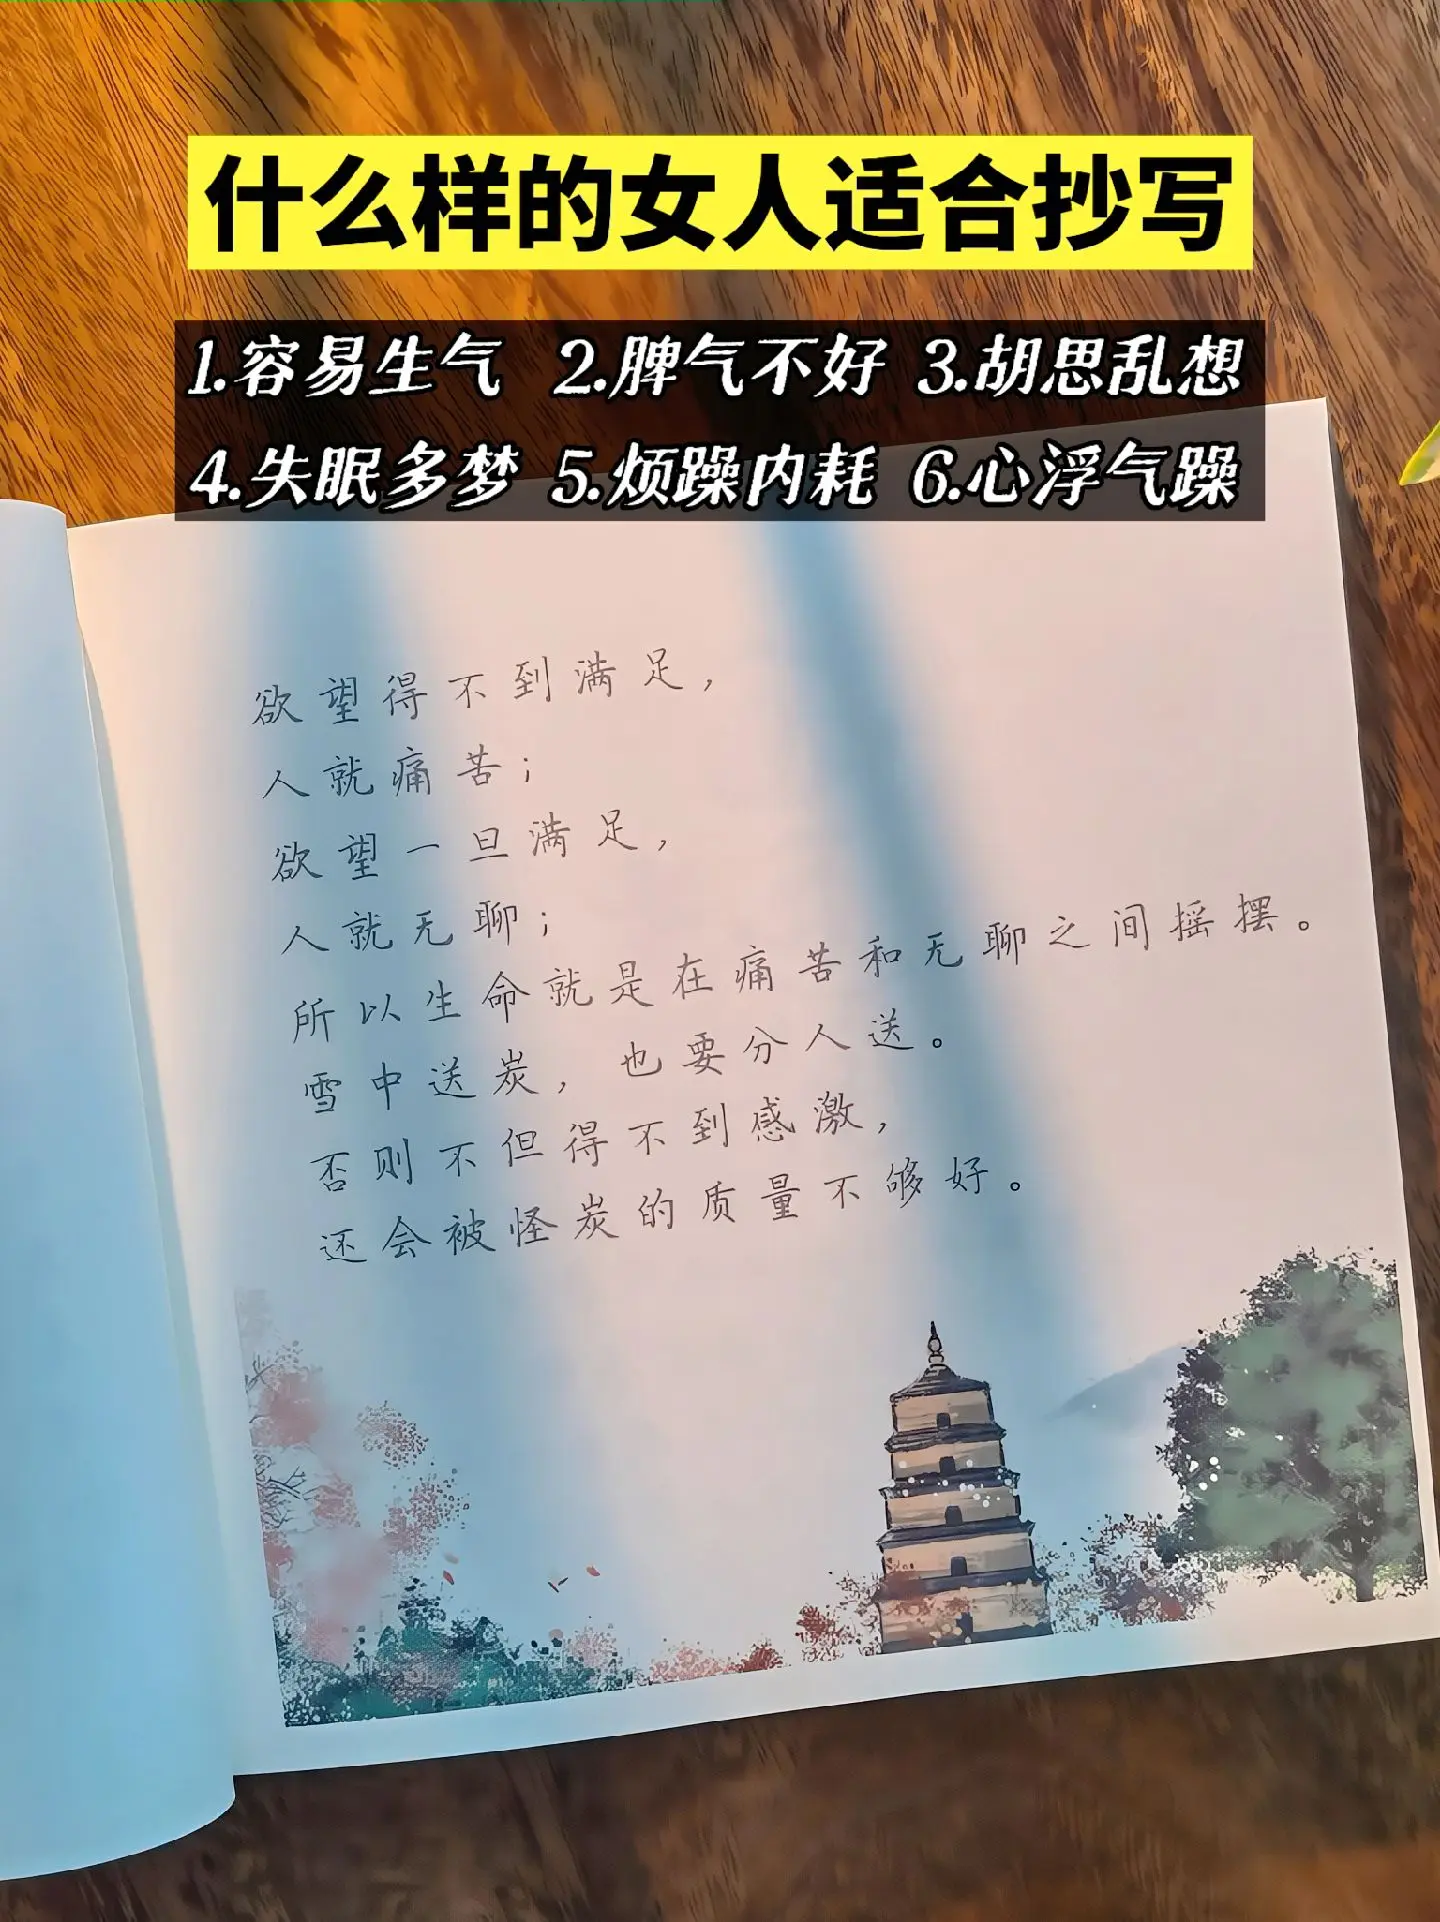 什么样的女人适合抄写
1.容易生气 2.脾气不好 3.胡思乱想
4.失眠多梦 5.烦躁内耗 6.心浮气躁
欲望得不到满足，
人就痛苦；
欲望一旦满足，
人就无聊；
所以生命就是在痛苦和无聊之间摇摆。
雪中送炭，也要分人送。
否则不但得不到感激，
还会被怪炭的质量不够好。